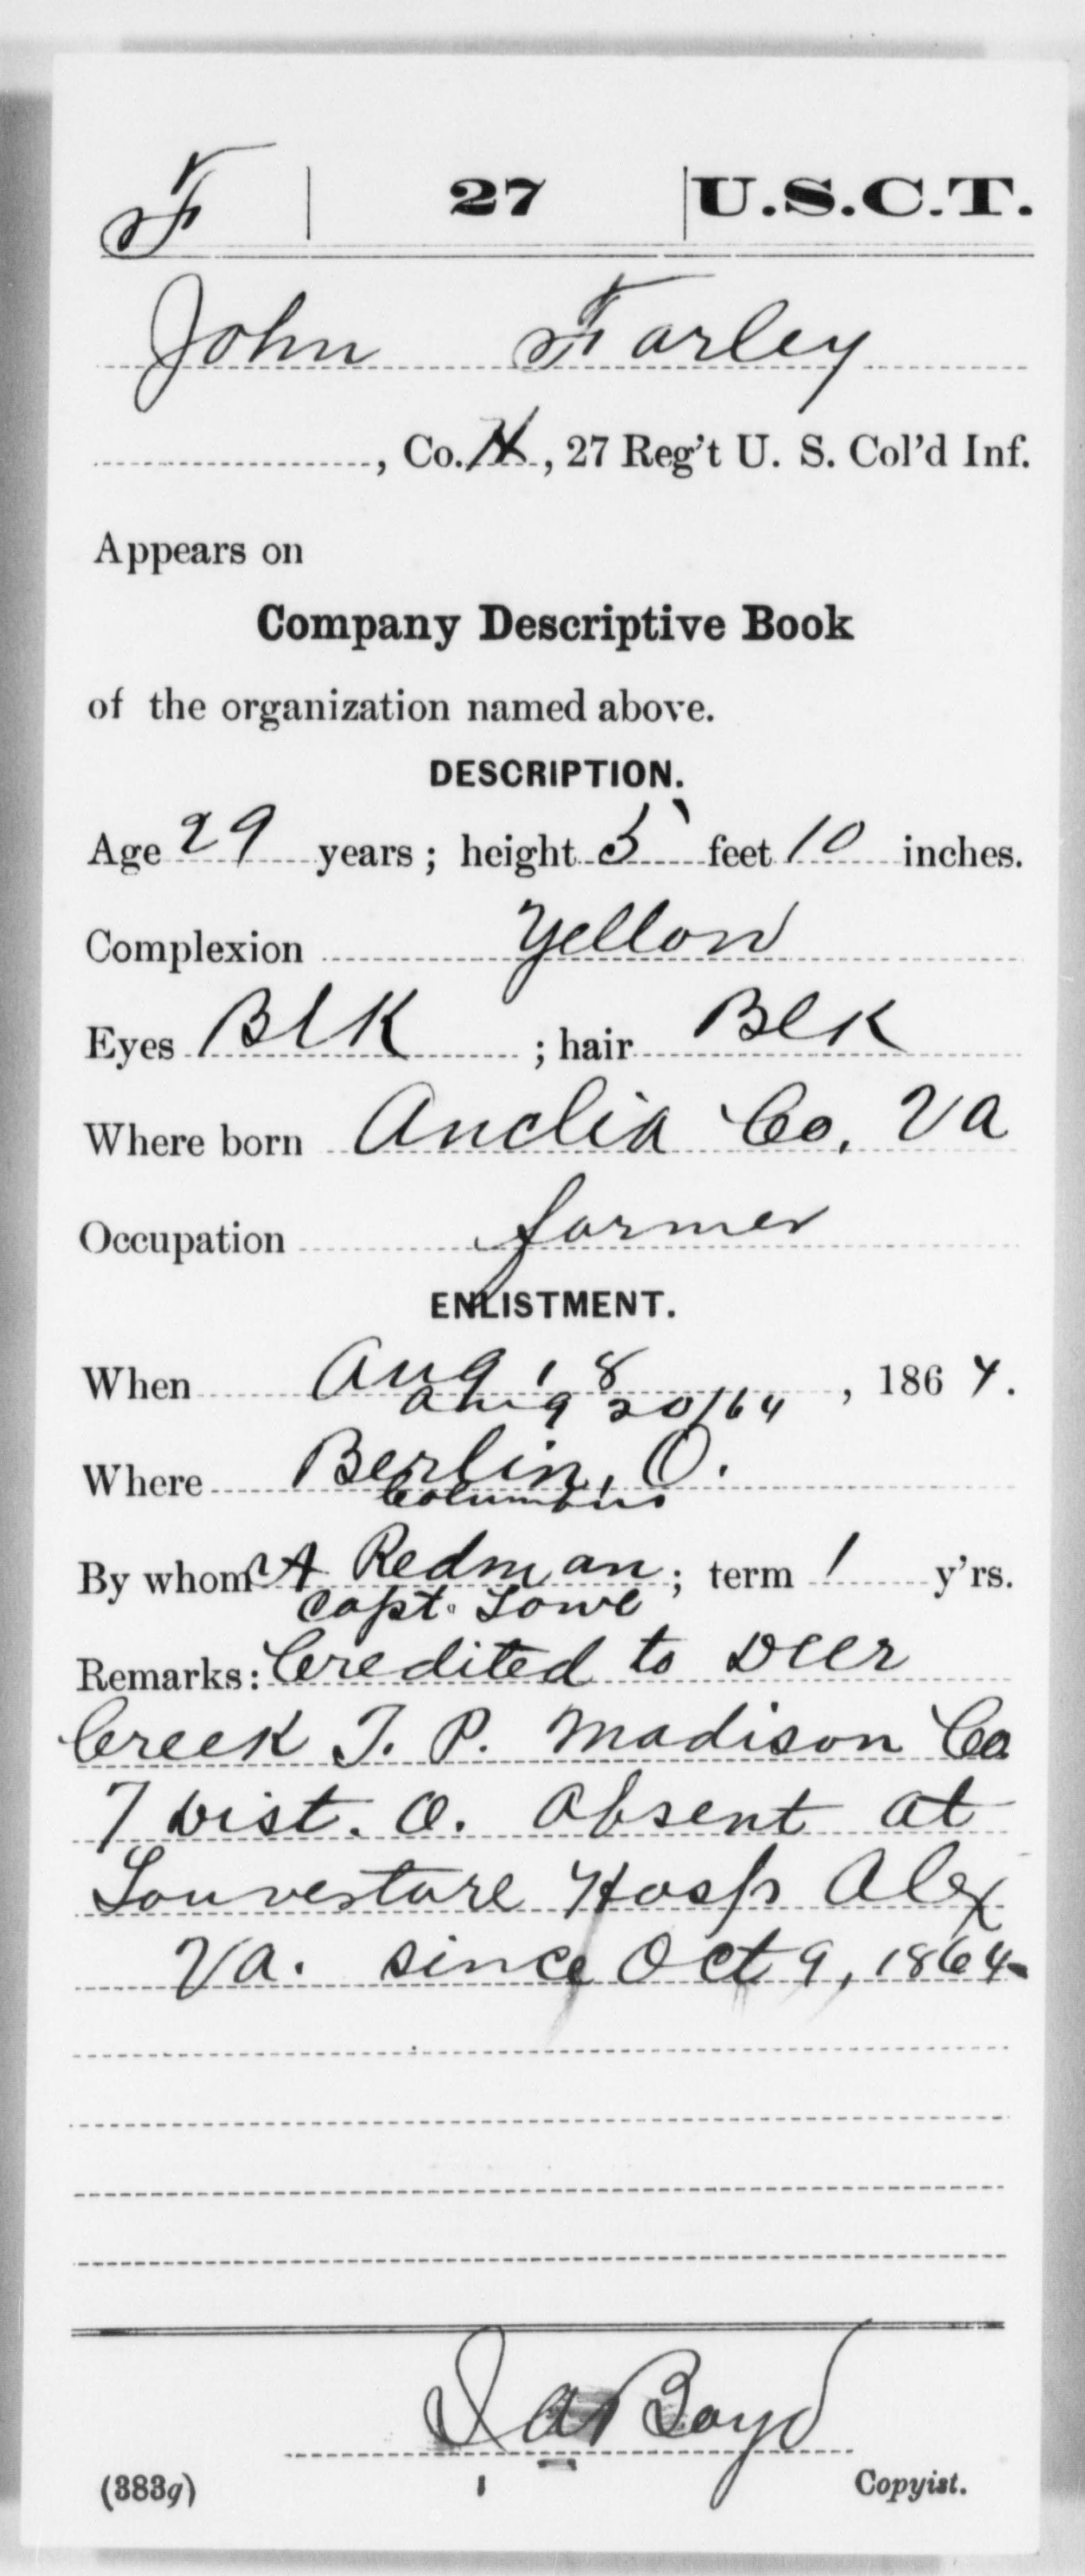 F | 27 | U.S.C.T.
John Farley
, Co. H, 27 Reg't U. S. Col'd Inf.
Appears on
Company Descriptive Book
of the organization named above.
DESCRIPTION.
Age 29 years; height 5 feet 10 inches.
Complexion Yellow
Eyes Blk; hair Blk
Where born Anelia Co, Va
Occupation farmer
ENLISTMENT.
When Aug 18, 1864.
Aug 20/64
Where Berlin, O.
Columbus
By whom A Redman; term 1 y'rs.
Capt. Lowe
Remarks: Credited to Deer
Creek T. P. Madison Co
7 Dist. O. Absent at
Louverture Hosp Alex
Va. since Oct 9, 1864
Boyd
(383g) Copyist.